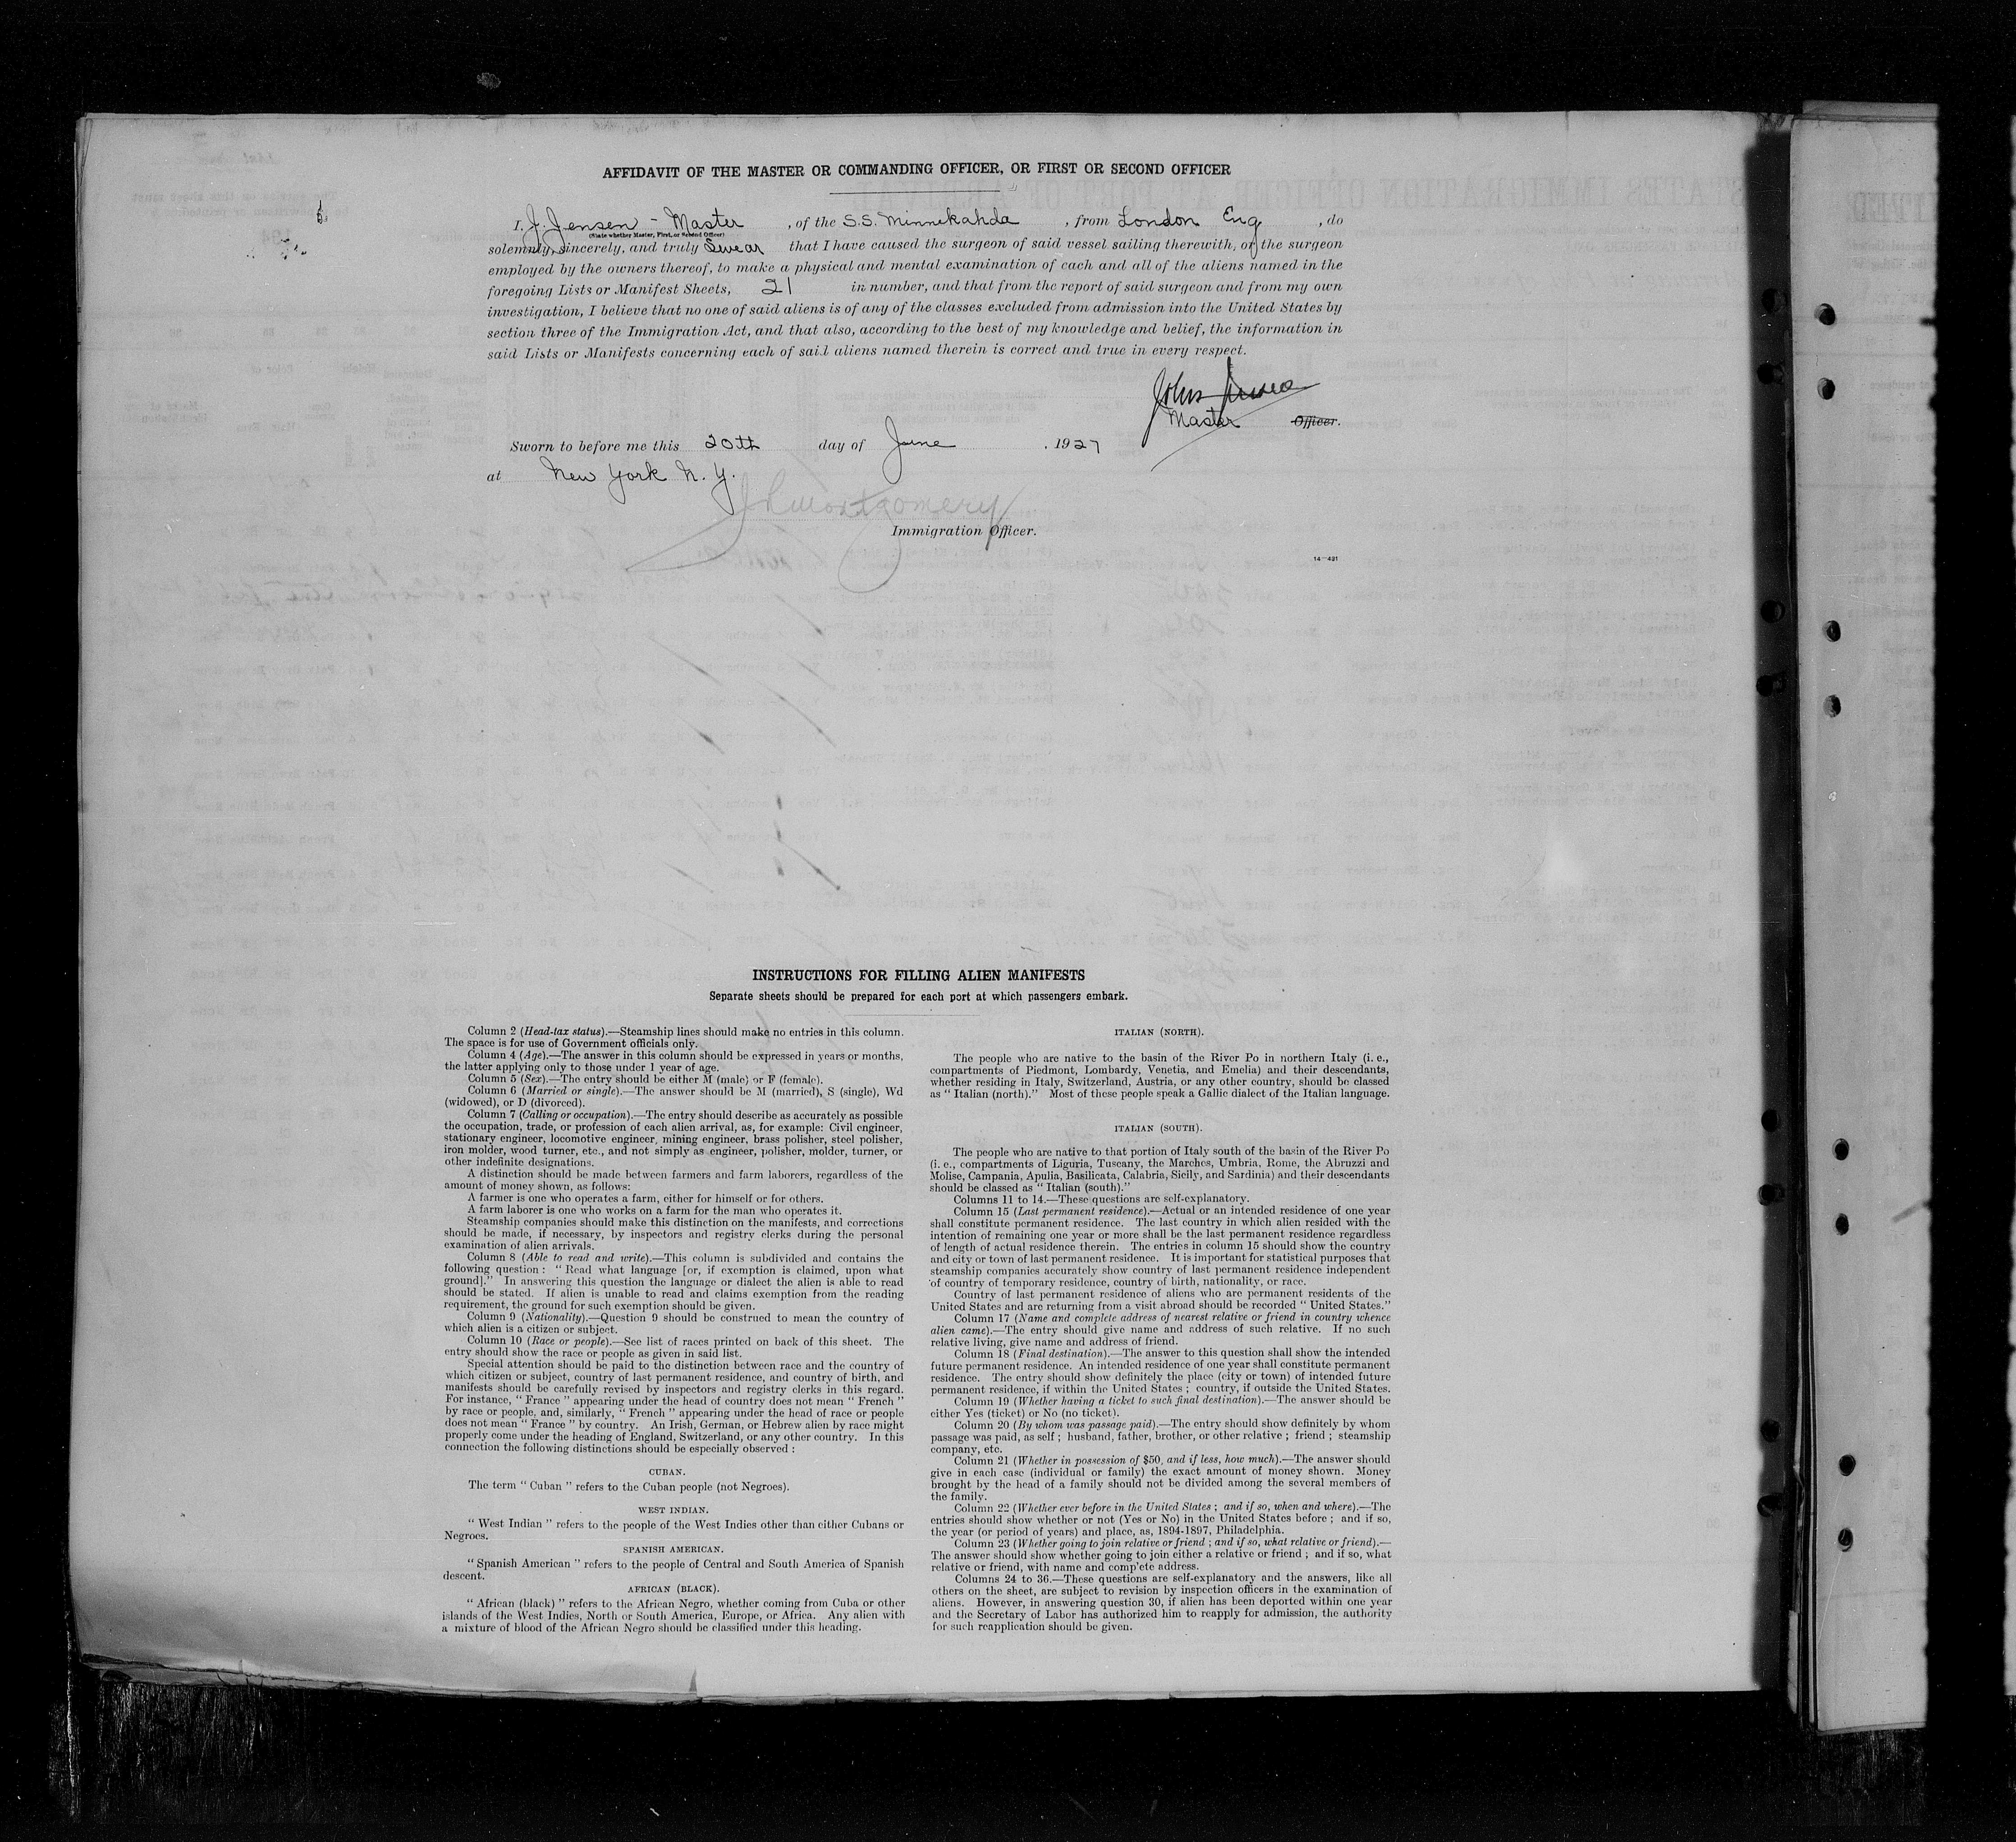 AFFIDAVIT OF THE MASTER OR COMMANDING OFFICER, OR FIRST OR SECOND OFFICER
I, J. Jensen - Master, of the S.S. Minnekahda, from London Eng, do
(State whether Master, First, or Second Officer)
solemnly, sincerely, and truly Swear that I have caused the surgeon of said vessel sailing therewith, or the surgeon
employed by the owners thereof, to make a physical and mental examination of each and all of the aliens named in the
foregoing Lists or Manifest Sheets, 21 in number, and that from the report of said surgeon and from my own
investigation, I believe that no one of said aliens is of any of the classes excluded from admission into the United States by
section three of the Immigration Act, and that also, according to the best of my knowledge and belief, the information in
said Lists or Manifests concerning each of said aliens named therein is correct and true in every respect.
John Jensen
Master Officer.
Sworn to before me this 20th day of June, 1927
at New York N.Y.
Montgomery
Immigration Officer.
14—431
INSTRUCTIONS FOR FILLING ALIEN MANIFESTS
Separate sheets should be prepared for each port at which passengers embark.
Column 2 (Head-tax status).—Steamship lines should make no entries in this column.
The space is for use of Government officials only.
Column 4 (Age).—The answer in this column should be expressed in years or months,
the latter applying only to those under 1 year of age.
Column 5 (Sex).—The entry should be either M (male) or F (female).
Column 6 (Married or single).—The answer should be M (married), S (single), Wd
(widowed), or D (divorced).
Column 7 (Calling or occupation).—The entry should describe as accurately as possible
the occupation, trade, or profession of each alien arrival, as, for example: Civil engineer,
stationary engineer, locomotive engineer, mining engineer, brass polisher, steel polisher,
iron molder, wood turner, etc., and not simply as engineer, polisher, molder, turner, or
other indefinite designations.
A distinction should be made between farmers and farm laborers, regardless of the
amount of money shown, as follows:
A farmer is one who operates a farm, either for himself or for others.
A farm laborer is one who works on a farm for the man who operates it.
Steamship companies should make this distinction on the manifests, and corrections
should be made, if necessary, by inspectors and registry clerks during the personal
examination of alien arrivals.
Column 8 (Able to read and write).—This column is subdivided and contains the
following question: "Read what language [or, if exemption is claimed, upon what
ground]." In answering this question the language or dialect the alien is able to read
should be stated. If alien is unable to read and claims exemption from the reading
requirement, the ground for such exemption should be given.
Column 9 (Nationality).—Question 9 should be construed to mean the country of
which alien is a citizen or subject.
Column 10 (Race or people).—See list of races printed on back of this sheet. The
entry should show the race or people as given in said list.
Special attention should be paid to the distinction between race and the country of
which citizen or subject, country of last permanent residence, and country of birth, and
manifests should be carefully revised by inspectors and registry clerks in this regard.
For instance, "France" appearing under the head of country does not mean "French"
by race or people, and, similarly, "French" appearing under the head of race or people
does not mean "France" by country. An Irish, German, or Hebrew alien by race might
properly come under the heading of England, Switzerland, or any other country. In this
connection the following distinctions should be especially observed:
CUBAN.
The term "Cuban" refers to the Cuban people (not Negroes).
WEST INDIAN.
"West Indian" refers to the people of the West Indies other than either Cubans or
Negroes.
SPANISH AMERICAN.
"Spanish American" refers to the people of Central and South America of Spanish
descent.
AFRICAN (BLACK).
"African (black)" refers to the African Negro, whether coming from Cuba or other
islands of the West Indies, North or South America, Europe, or Africa. Any alien with
a mixture of blood of the African Negro should be classified under this heading.
ITALIAN (NORTH).
The people who are native to the basin of the River Po in northern Italy (i. e.,
compartments of Piedmont, Lombardy, Venetia, and Emelia) and their descendants,
whether residing in Italy, Switzerland, Austria, or any other country, should be classed
as "Italian (north)." Most of these people speak a Gallic dialect of the Italian language.
ITALIAN (SOUTH).
The people who are native to that portion of Italy south of the basin of the River Po
(i. e., compartments of Liguria, Tuscany, the Marches, Umbria, Rome, the Abruzzi and
Molise, Campania, Apulia, Basilicata, Calabria, Sicily, and Sardinia) and their descendants
should be classed as "Italian (south)."
Columns 11 to 14.—These questions are self-explanatory.
Column 15 (Last permanent residence).—Actual or an intended residence of one year
shall constitute permanent residence. The last country in which alien resided with the
intention of remaining one year or more shall be the last permanent residence regardless
of length of actual residence therein. The entries in column 15 should show the country
and city or town of last permanent residence. It is important for statistical purposes that
steamship companies accurately show country of last permanent residence independent
of country of temporary residence, country of birth, nationality, or race.
Country of last permanent residence of aliens who are permanent residents of the
United States and are returning from a visit abroad should be recorded "United States."
Column 17 (Name and complete address of nearest relative or friend in country whence
alien came).—The entry should give name and address of such relative. If no such
relative living, give name and address of friend.
Column 18 (Final destination).—The answer to this question shall show the intended
future permanent residence. An intended residence of one year shall constitute permanent
residence. The entry should show definitely the place (city or town) of intended future
permanent residence, if within the United States; country, if outside the United States.
Column 19 (Whether having a ticket to such final destination).—The answer should be
either Yes (ticket) or No (no ticket).
Column 20 (By whom was passage paid).—The entry should show definitely by whom
passage was paid, as self; husband, father, brother, or other relative; friend; steamship
company, etc.
Column 21 (Whether in possession of $50, and if less, how much).—The answer should
give in each case (individual or family) the exact amount of money shown. Money
brought by the head of a family should not be divided among the several members of
the family.
Column 22 (Whether ever before in the United States; and if so, when and where).—The
entries should show whether or not (Yes or No) in the United States before; and if so,
the year (or period of years) and place, as, 1894-1897, Philadelphia.
Column 23 (Whether going to join relative or friend; and if so, what relative or friend).—
The answer should show whether going to join either a relative or friend; and if so, what
relative or friend, with name and complete address.
Columns 24 to 36.—These questions are self-explanatory and the answers, like all
others on the sheet, are subject to revision by inspection officers in the examination of
aliens. However, in answering question 30, if alien has been deported within one year
and the Secretary of Labor has authorized him to reapply for admission, the authority
for such reapplication should be given.